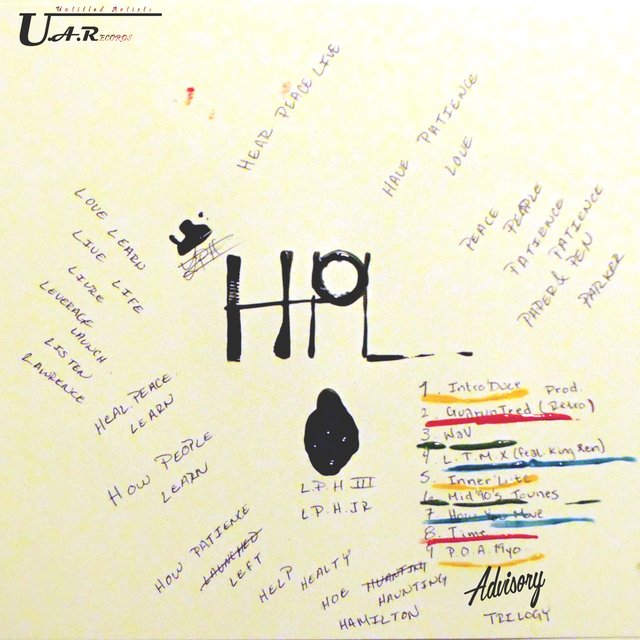 Untitled Artists
U.A.RECORDS
HEAR PEACE LIVE
HAVE PATIENCE
LOVE
PEACE PEOPLE
PATIENCE PATIENCE
PAPER & PEN
PARKER
LOVE LEARN
LIVE LIFE
LIVRE
LEVERAGE LAUNCH
LISTEN
LAWRENCE
LPH
HPL
HEAL PEACE
LEARN
HOW PEOPLE
LEARN
HOW PATIENCE
LAUNCHED
LEFT
HELP HEALTY
HOE HUANTING
HAUNTING
HAMILTON
L.P.H III
L.P.H.JR
1. Intro'Duce Prod.
2. (Retro)
3. WaV
4. L.T.M.X (feat. King Ken)
5. Inner'Life
6. Mid'90's Tounes
7 How You Move
8. Time
9 P.O.A. Piyo
Advisory
TRILOGY